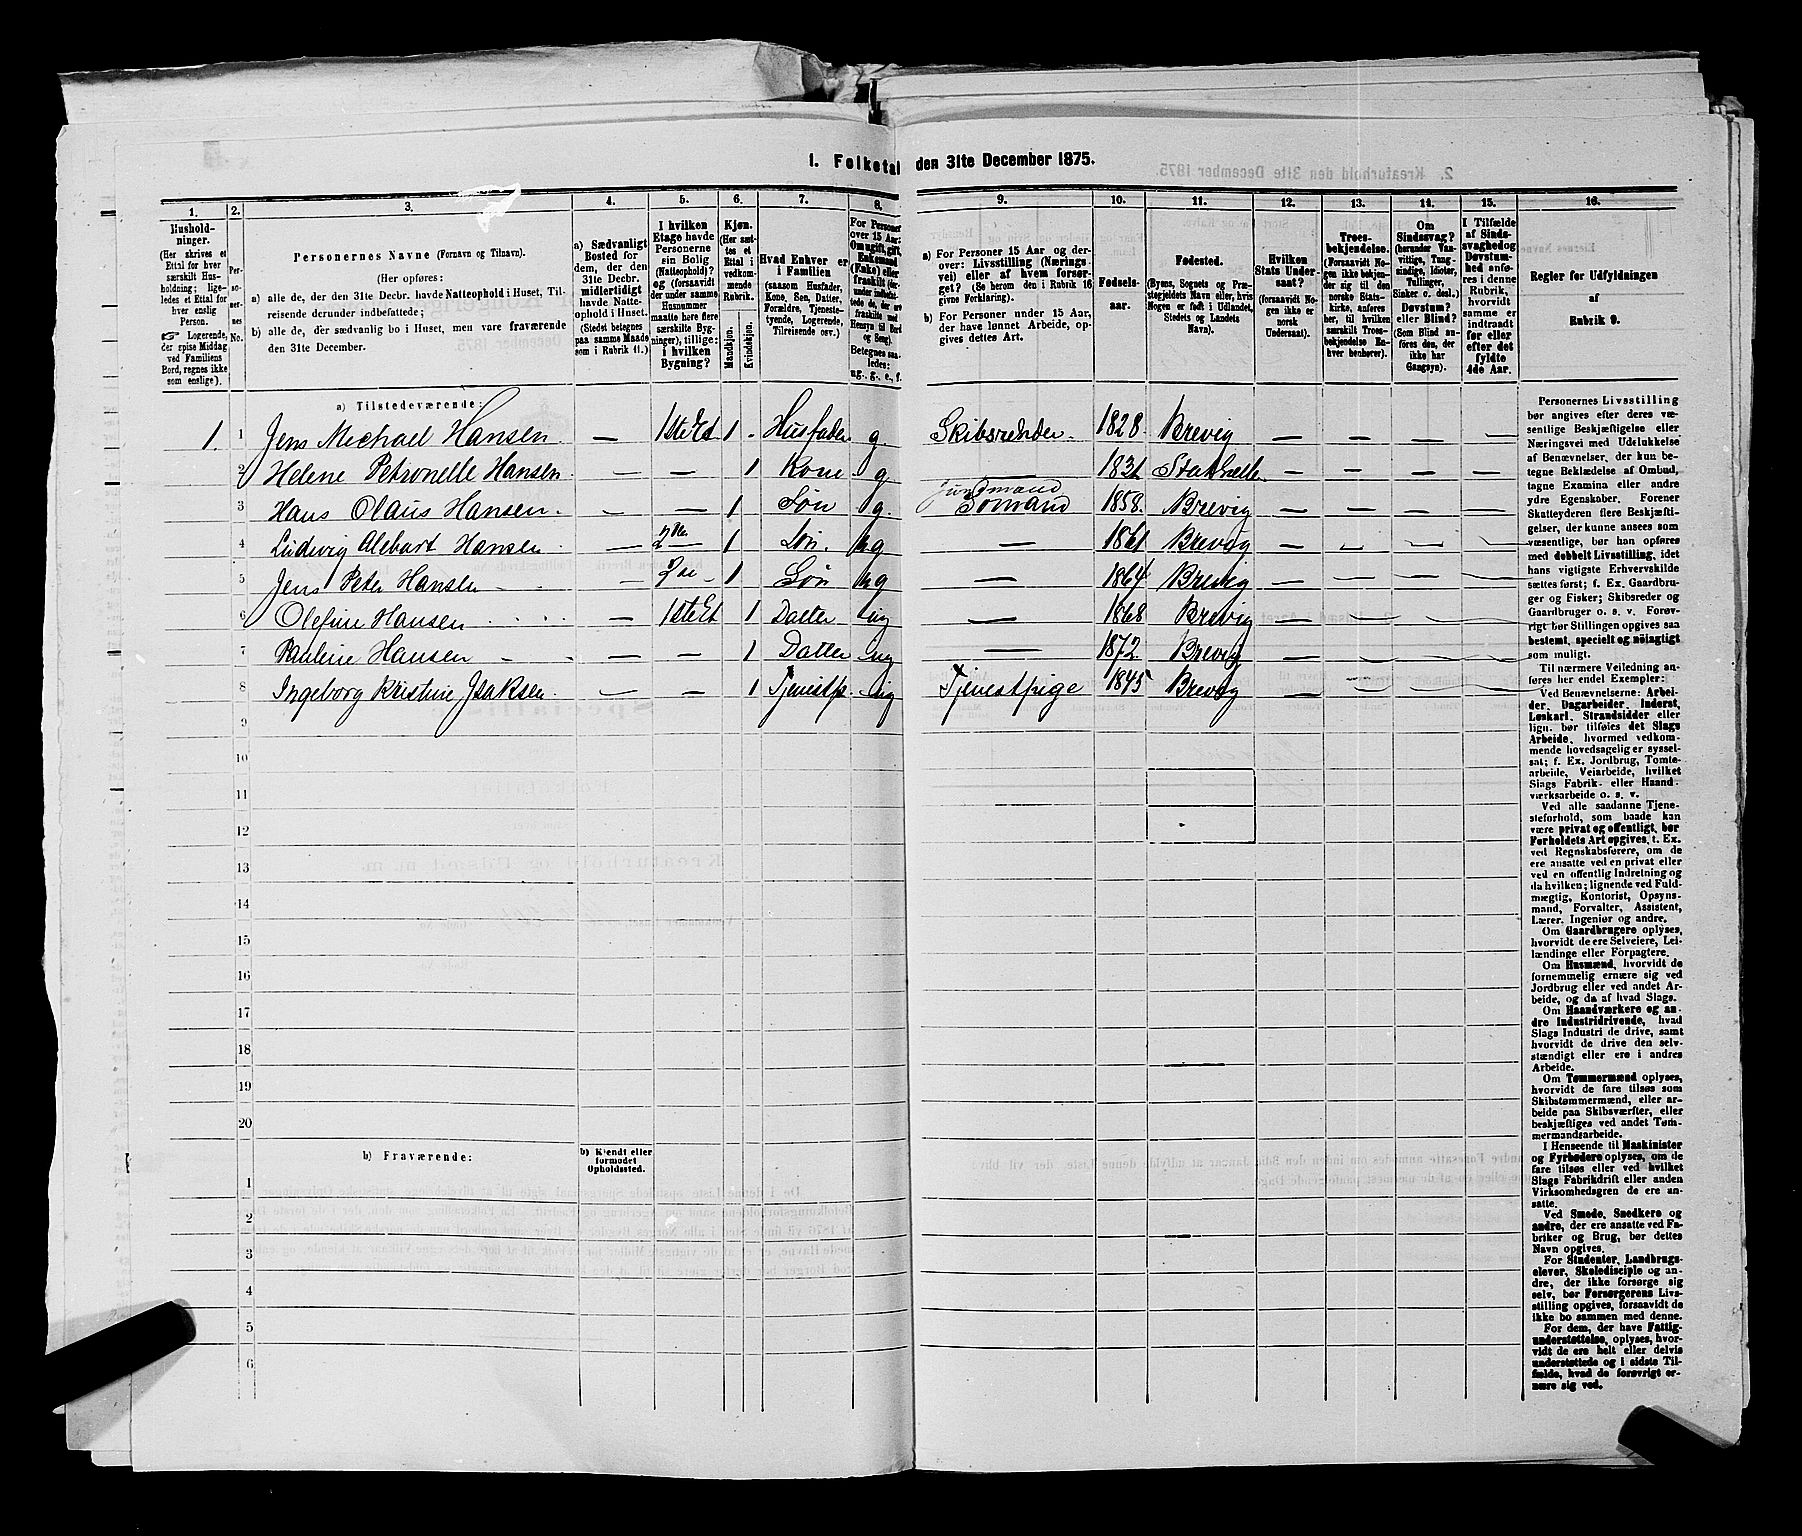 1. Folketal den 31te December 1875.
1. 2. 3. 4. 5. 6. 7. 8. 9. 10. 11. 12. 13. 14. 15. 16.
Hushold-
ninger.
(Her skrives et
Ettal for hver
særskilt Hus-
holdning; lige-
ledes et Ettal for
hver enslig
Person.
Logerende,
der spise Middag
ved Familiens
Bord, regnes ikke
som enslige).
Per-
so-
ner-
nes
No.
Personernes Navne (Fornavn og Tilnavn).
(Her opføres:
a) alle de, der den 31te Decbr. havde Natteophold i Huset, Til-
reisende derunder indbefattede;
b) alle de, der sædvanlig bo i Huset, men vare fraværende
den 31te December.
a) Sædvanligt
Bosted for
dem, der den
31te Decbr.
midlertidigt
havde Natte-
ophold i Huset.
(Stedet betegnes
paa samme Maade
som i Rubrik 11.)
I hvilken
Etage havde
Personerne
sin Bolig
(Natteophold)?
(forsaavidt
der under samme
Husnummer
maatte høre flere
særskilte Byg-
ninger), tillige:
i hvilken
Bygning?
Kjøn.
(Her sæt-
tes et
Ettal i
vedkom-
mende
Rubrik.
Mandkjøn.
Kvindekjøn.
Hvad Enhver er
i Familien
(saasom Husfader,
Kone, Søn, Datter,
Forældre, Tjeneste-
tyende, Logerende,
Tilreisende osv.)
For Personer
over 15 Aar:
Om ugift, gift,
Enkemand
(Enke) eller
fraskilt
Betegnes saa-
ledes:
ug., g., e., f.
a) For Personer 15 Aar og der-
over: Livsstilling (Nærings-
vei) eller af hvem forsør-
get? (Se herom den i Rubrik 16
givne Forklaring).
b) For Personer under 15 Aar,
der have lønnet Arbeide, op-
gives dettes Art.
Fødsels-
aar.
Fødested.
(Byens, Sognets og Præ-
stegjeldets Navn eller, hvis
Nogen er født i Udlandet,
Stedets og Landets
Navn).
Hvilken
Stats Under-
saat?
(forsaavidt No-
gen ikke er
norsk
Undersaat).
Troes-
bekjendelse.
(Forsaavidt No-
gen ikke bekjen-
der sig til den
norske Stats-
kirke, anføres
her, til hvilken
særskilt Troes-
bekjendelse En-
hver henhører).
Om
Sindssvag?
(herunder Van-
vittige, Tung-
sindige, Idioter,
Tullinger,
Sinker o. desl.)
Døvstum?
eller Blind?
(Som Blind an-
føres den, der
ikke har
Gangsyn).
I Tilfælde
af Sinds-
svaghed og
Døvstum-
hed anfø-
res i denne
Rubrik,
hvorvidt
samme er
indtraadt
før eller
efter det
fyldte
4de Aar.
Regler for Udfyldningen
af
Rubrik 9.
a) Tilstedeværende:
1. 1 Jens Michael Hansen — 1ste Et 1 Husfader g. Skibsrheder 1828 Brevig
2 Helene Petronelle Hansen — — 1 Kone g — 1831 Stathelle
3 Hans Olaus Hansen — 1 Søn g. Jungmand Sømand 1858. Brevig
4 Ludvig Alebart Hansen — 2den 1 Søn. ug — 1861 Brevig
5 Jens Peter Hansen — 2de 1 Søn ug — 1864 Brevig
6 Olefine Hansen — 1ste Et 1 Datter ug — 1868 Brevig
7 Pauline Hansen — — 1 Datter ug — 1872 Brevig
8 Ingeborg Kristine Isaksen — — 1 Tjenestp. ug Tjenestpige 1845 Brevig
9
10
11
12
13
14
15
16
17
18
19
20
b) Fraværende:
b) Kjendt eller
formodet
Opholdssted.
1
2
3
4
5
6
Personernes Livsstilling
bør angives efter deres væ-
sentlige Beskjæftigelse eller
Næringsvei med Udelukkelse
af Benævnelser, der kun be-
tegne Beklædelse af Ombud,
tagne Examina eller andre
ydre Egenskaber. Forener
Skatteyderen flere Beskjæfti-
gelser, der kunne ansees som
væsentlige, bør han opføres
med dobbelt Livsstilling, idet
hans vigtigste Erhvervskilde
sættes først; f. Ex. Gaardbru-
ger og Fisker; Skibsreder og
Gaardbruger o. s. v. Forøv-
rigt bør Stillingen opgives saa
bestemt, specielt og nøiagtigt
som muligt.
Til nærmere Veiledning an-
føres her endel Exempler:
Ved Benævnelserne: Arbei-
der, Dagarbeider, Inderst,
Løskarl, Strandsidder eller
lign. bør tilføies det Slags
Arbeide, hvormed vedkom-
mende hovedsagelig er syssel-
sat; f. Ex. Jordbrug, Tomte-
arbeide, Veiarbeide, hvilket
Slags Fabrik- eller Haand-
værksarbeide o. s. v.
Ved alle saadanne Tjene-
steforhold, som baade kan
være privat og offentligt, bør
Forholdets Art opgives, t. Ex.
ved Regnskabsførere, om de
ere ansatte ved en privat eller
ved en offentlig Indretning og
da hvilken; lignende ved Fuld-
mægtig, Kontorist, Opsyns-
mand, Forvalter, Assistent,
Lærer, Ingeniør og andre.
Om Gaardbrugere oplyses,
hvorvidt de ere Selveiere, Lei-
lændinge eller Forpagtere.
Om Husmænd, hvorvidt de
fornemmelig ernære sig ved
Jordbrug eller ved andet Ar-
beide, og da af hvad Slags.
Om Haandværkere og an-
dre Industridrivende, hvad
Slags Industri de drive, samt
hvorvidt de drive den selv-
stændigt eller ere i andres
Arbeide.
Om Tømmermænd oplyses,
hvorvidt de fare tilsøs som
Skibstømmermænd, eller ar-
beide paa Skibsværfter, eller
beskjæftiges ved andet Tøm-
mermandsarbeide.
I Henseende til Maskinister
og Fyrbødere oplyses, om de
fare tilsøs eller ved hvilket
Slags Fabrikdrift eller anden
Virksomhedsgren de ere an-
satte.
Ved Smede, Snedkere og
andre, der ere ansatte ved Fa-
briker og Brug, bør dettes
Navn opgives.
For Studenter, Landbrugs-
elever, Skoledisciple og an-
dre, der ikke forsørge sig
selv, bør Forsørgerens Livs-
stilling opgives, forsaavidt de
ikke bo sammen med denne.
For dem, der have Fattig-
understøttelse, oplyses, hvor-
vidt de ere helt eller delvis
understøttede og i sidste Til-
fælde, hvad de forøvrigt er-
nære sig ved.